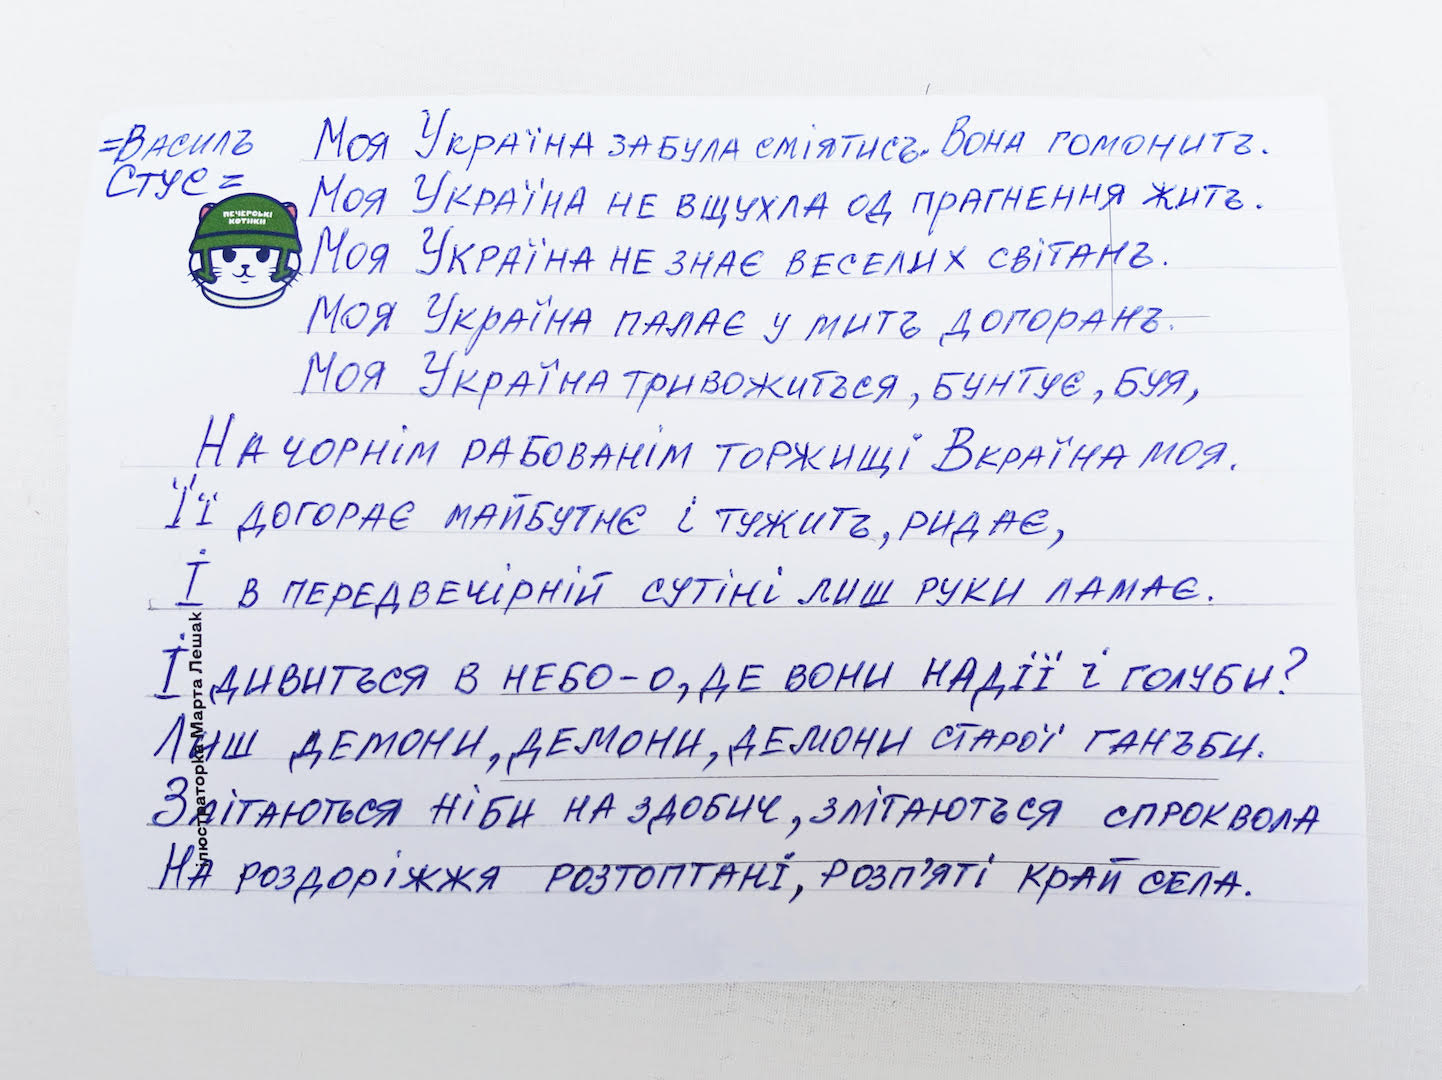 =Василь
Стус=
ПЕЧЕРСЬКІ
КОТИКИ
Моя Україна забула сміятись. Вона гомонить.
Моя Україна не вщухла од прагнення жить.
Моя Україна не знає веселих світань.
Моя Україна палає у мить догорань.
Моя Україна тривожиться, бунтує, буя,
На чорнім рабованім торжищі Вкраїна моя.
Її догорає майбутнє і тужить, ридає,
І в передвечірній сутіні лиш руки ламає.
І дивиться в небо-о, де вони надії і голуби?
Лиш демони, демони, демони старої ганьби.
Злітаються ніби на здобич, злітаються спроквола
На роздоріжжя розтоптані, розп'яті край села.
ілюстраторка Марта Лешак